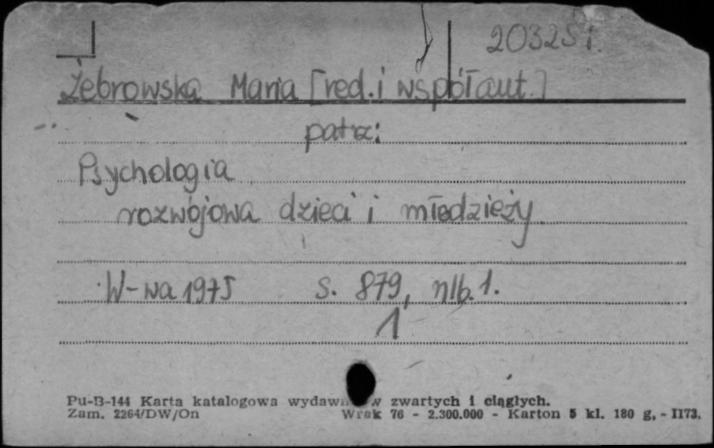 20325 i.
Żebrowska Maria [red. i współaut.]
patrz:
Psychologia
rozwojowa dzieci i młodzieży
W-wa 1975 s. 879, nlb. 1.
1
Pu-B-144 Karta katalogowa zwartych i ciągłych.
Zam. 2264/DW/On Wrak 76 - 2.300.000 - Karton 5 kl. 180 g. - II73.